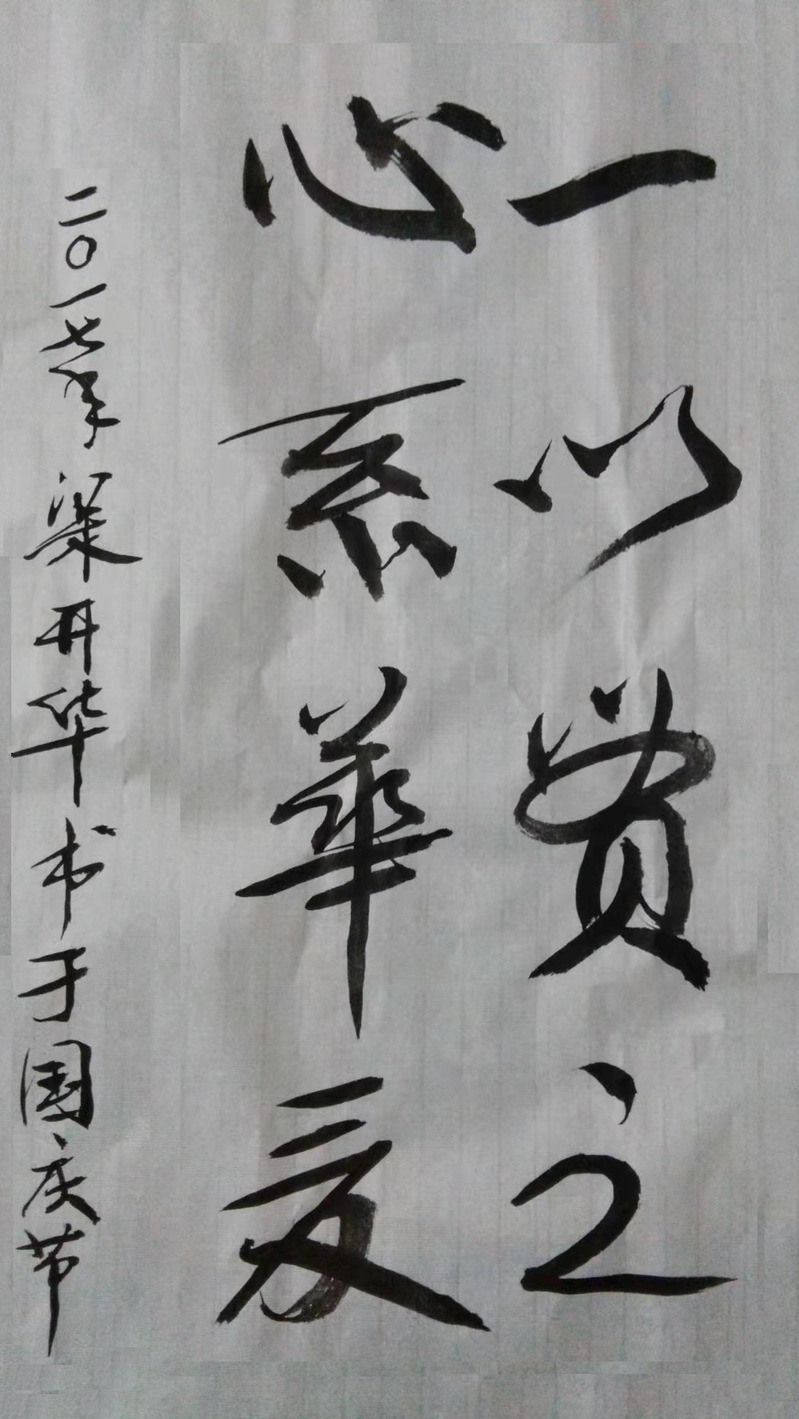 一以贯之
心系華夏
二〇一七年梁开华书于国庆节